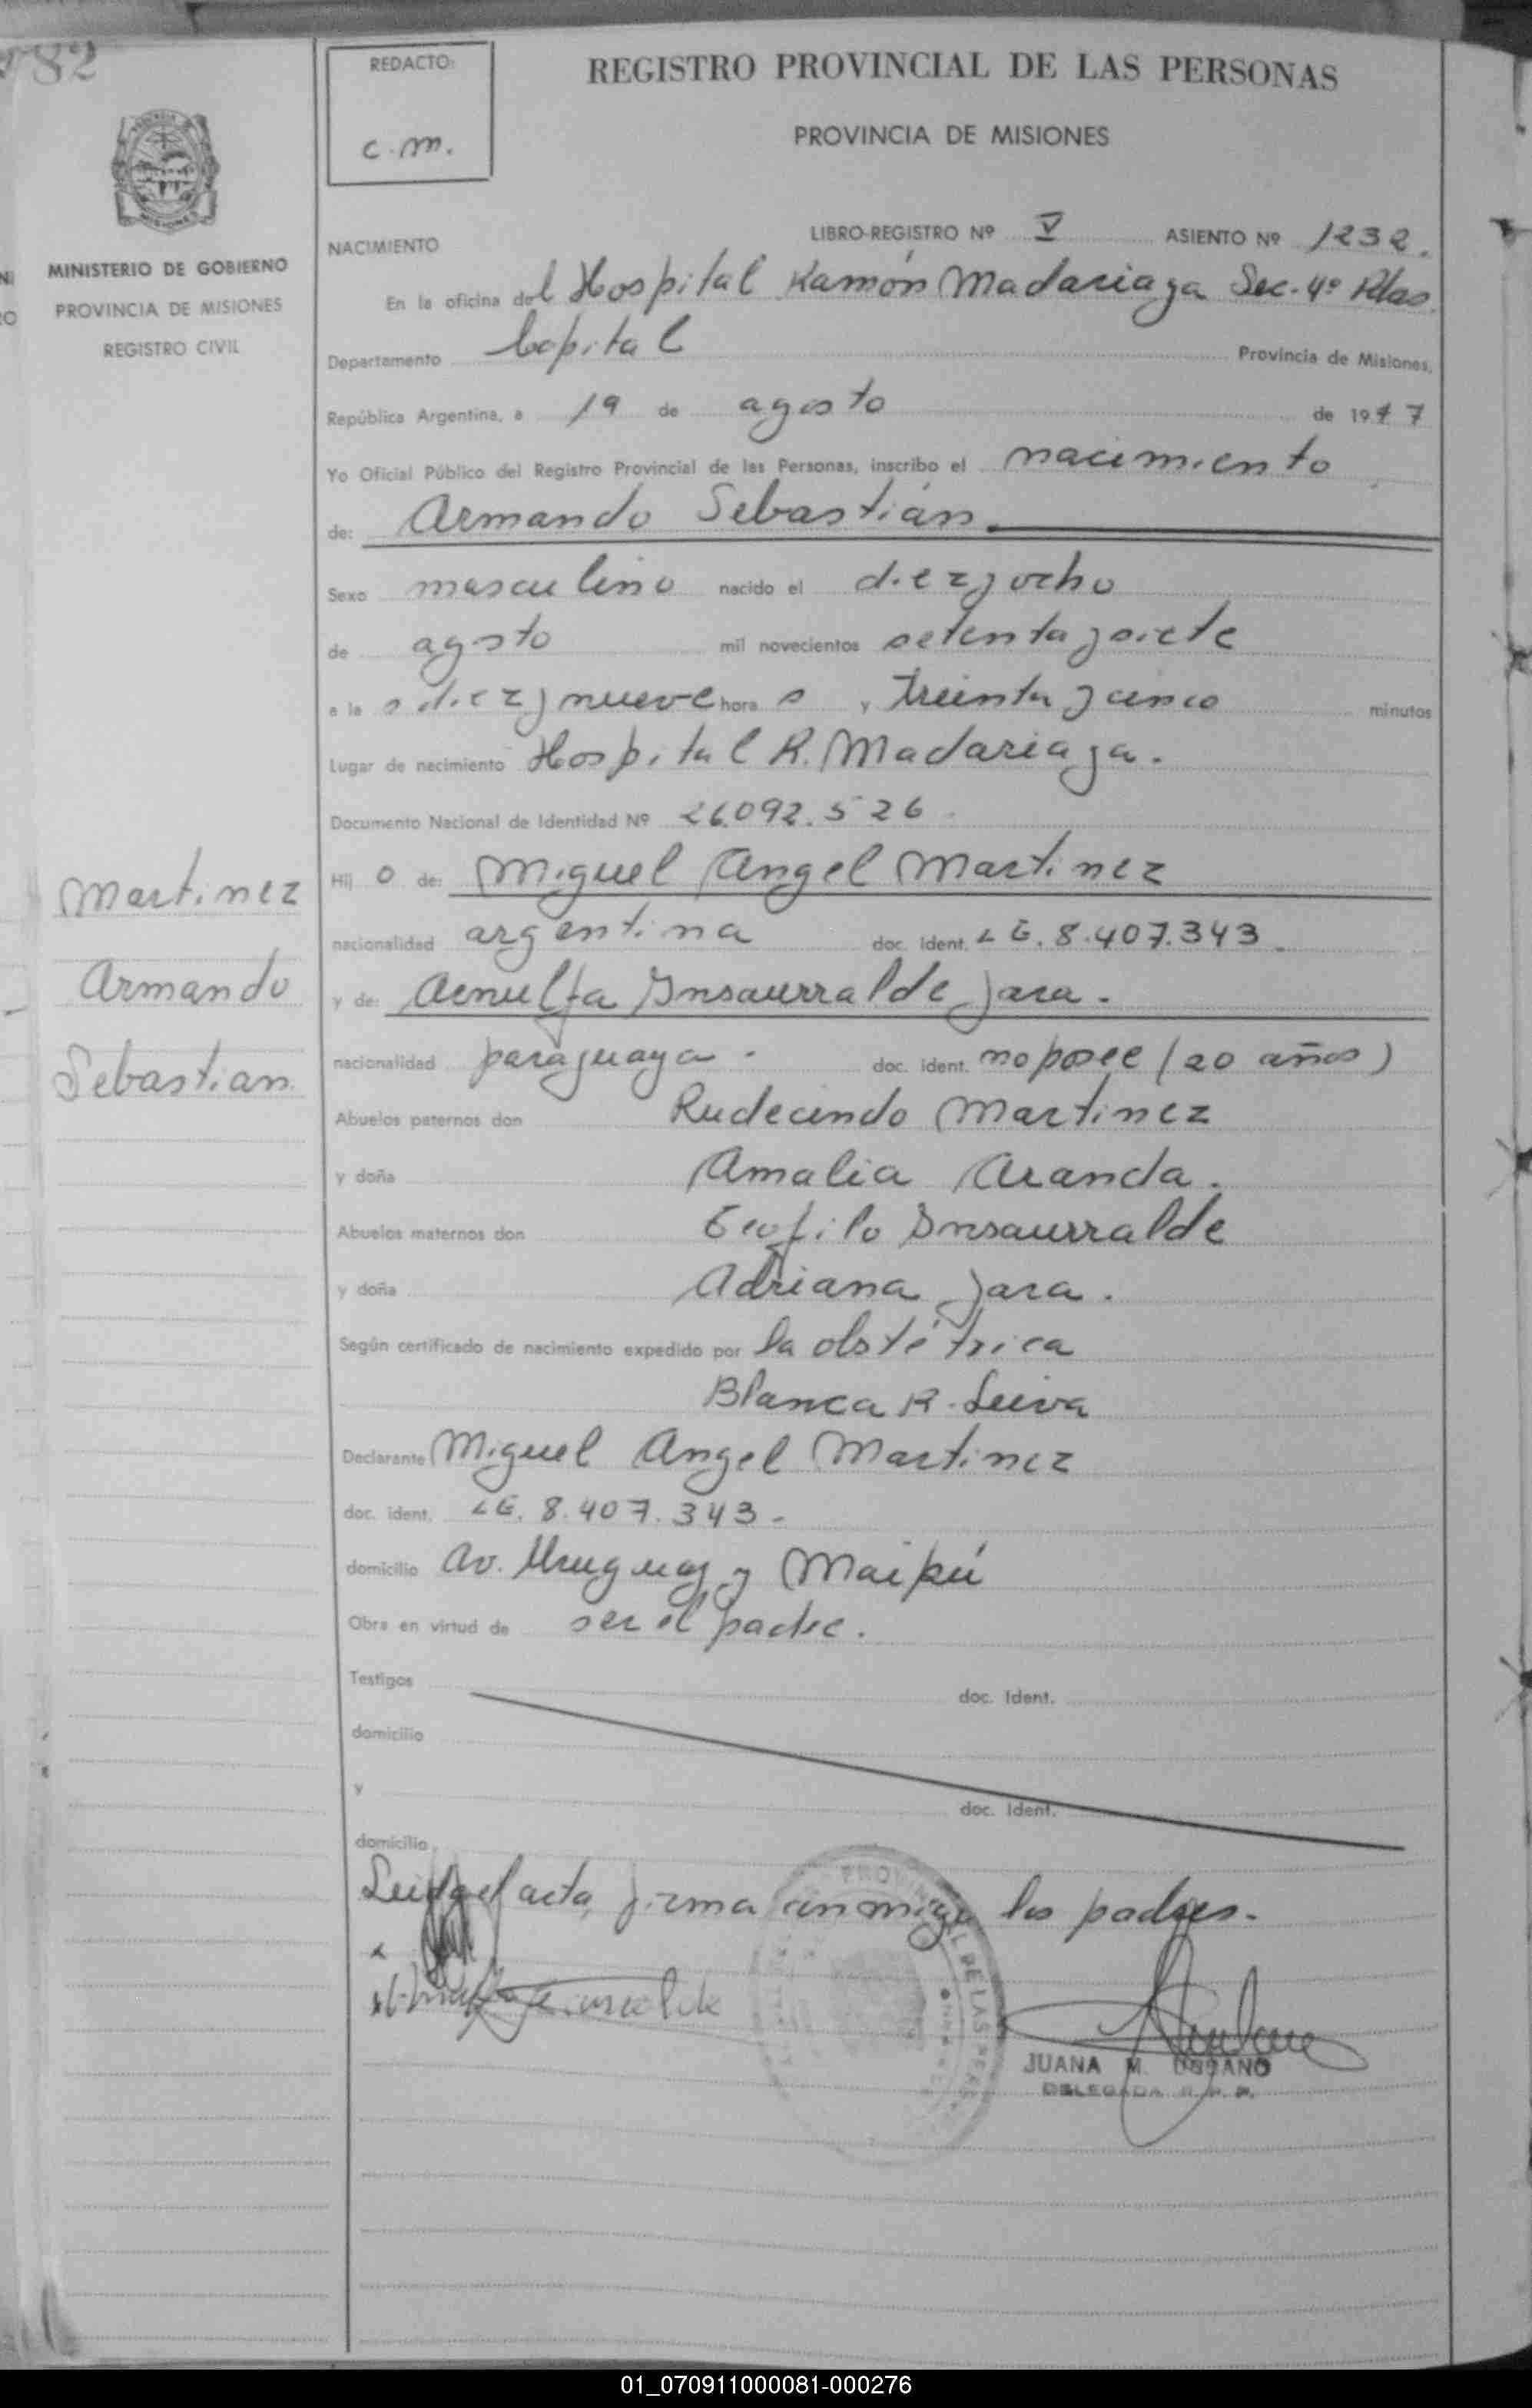 782
REDACTO:
c.m.
REGISTRO PROVINCIAL DE LAS PERSONAS
PROVINCIA DE MISIONES
MINISTERIO DE GOBIERNO
PROVINCIA DE MISIONES
REGISTRO CIVIL
NACIMIENTO
LIBRO-REGISTRO Nº V ASIENTO Nº 1232.
En la oficina del Hospital Ramón Madariaga Sec. 4º Pdas
Departamento Capital Provincia de Misiones,
República Argentina, a 19 de agosto de 1977
Yo Oficial Público del Registro Provincial de las Personas, inscribo el nacimiento
de: Armando Sebastián
Sexo masculino nacido el diez y ocho
de agosto mil novecientos setenta y siete
a la s diez y nueve hora s y treinta y cinco minutos
Lugar de nacimiento Hospital R. Madariaga.
Documento Nacional de Identidad Nº 26.092.526.
Hij o de: Miguel Angel Martinez
nacionalidad argentina doc. ident. L E. 8.407.343.
y de: Arnulfa Insaurralde Jara.
nacionalidad paraguaya. doc. ident. no posee (20 años)
Abuelos paternos don Rudecindo Martinez
y doña Amalia Aranda.
Abuelos maternos don Teofilo Insaurralde
y doña Adriana Jara.
Según certificado de nacimiento expedido por la obstétrica
Blanca R. Leiva
Declarante Miguel Angel Martinez
doc. ident. LE. 8.407.343-
domicilio av. Uruguay y Maipú
Obra en virtud de ser el padre.
Testigos doc. Ident.
domicilio
y doc. Ident.
domicilio
Leida el acta, firma conmigo los padres.
JUANA M. LEGANO
DELEGADA R. P. P.
Martinez
Armando
Sebastian.
01_070911000081-000276